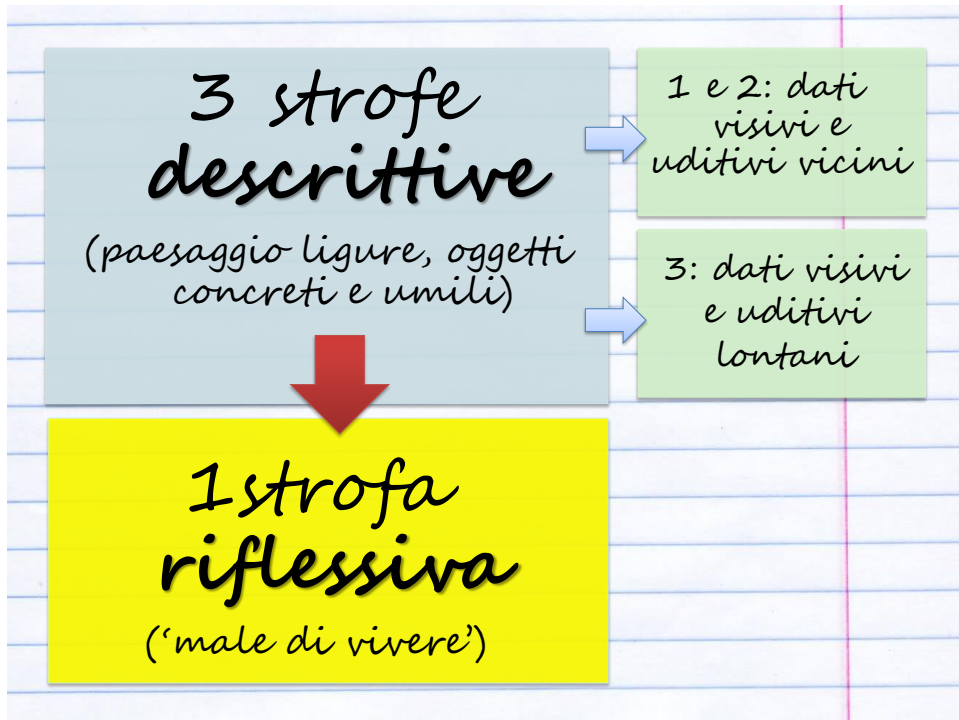 3 strofe
descrittive
(paesaggio ligure, oggetti
concreti e umili)
1 e 2: dati
visivi e
uditivi vicini
3: dati visivi
e uditivi
lontani
1strofa
riflessiva
(‘male di vivere’)